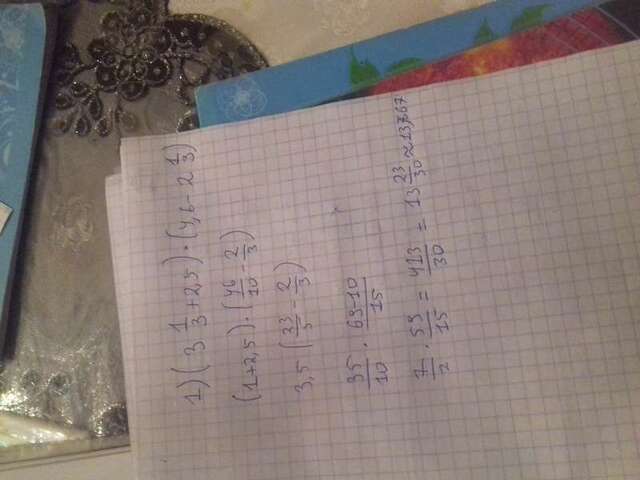 1) (3 1/3 + 2,5) · (4,6 - 2 1/3)
(1+2,5) · (46/10 - 2/3)
3,5 (23/5 - 2/3)
35/10 · 69-10/15
7/2 · 59/15 = 413/30 = 13 23/30 ≈ 13,767